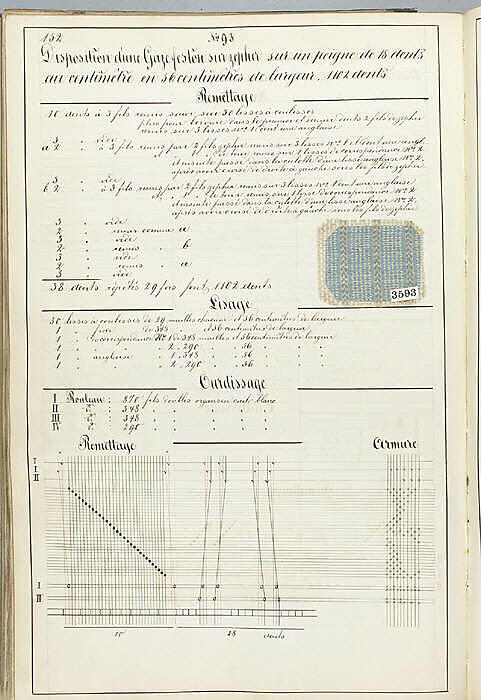 152
No 93
Disposition d'une Gaze feston sur zephir sur un peigne de 18 dents
au centimètre en 56 centimètres de largeur, 1102 dents
Remettage
10 dents à 3 fils remis suivi sur 30 lisses à coulisses
plus pour
remis sur 3 lisses No 1 dont une anglaise
3 " vide
a 2 " à 3 fils remis par 2 fils zephir remis sur 3 lisses No 1 et dont une
et ensuite passé dans la culotte d'une lisse anglaise No 2,
après avoir croisé de droite à gauche sous les fils de zephir
3 " vide
b 2 " à 3 fils remis par 2 fils zephir remis sur 3 lisses No 1 dont une anglaise
et ensuite passé dans la culotte d'une lisse anglaise No 2,
après avoir croisé de droite à gauche sous les fils de zephir
3 " vide
2 " remis comme a
3 " vide
2 " remis " b
3 " vide
2 " remis " a
3 " vide
38 dents répétés 29 fois font, 1102 dents
3593
Lisage
30 lisses à coulisses de 29 mailles chacune et 56 centimètres de largeur
1 " fixe de 348 " et 56 centimètres de largeur
1 " de correspondance No 1 de 348 mailles et 56 centimètres de largeur
1 " " 2 " 290 " " 56 " "
1 " anglaise " 1 " 348 " " 56 " "
1 " " 2 " 290 " " 56 " "
Ourdissage
I Rouleau : 870 fils doubles organsin cuit blanc
II " : 348 " " " "
III " : 348 " " " "
IV " : 290 " " " "
Remettage
Armure
I
II
I
II
10
28
dents